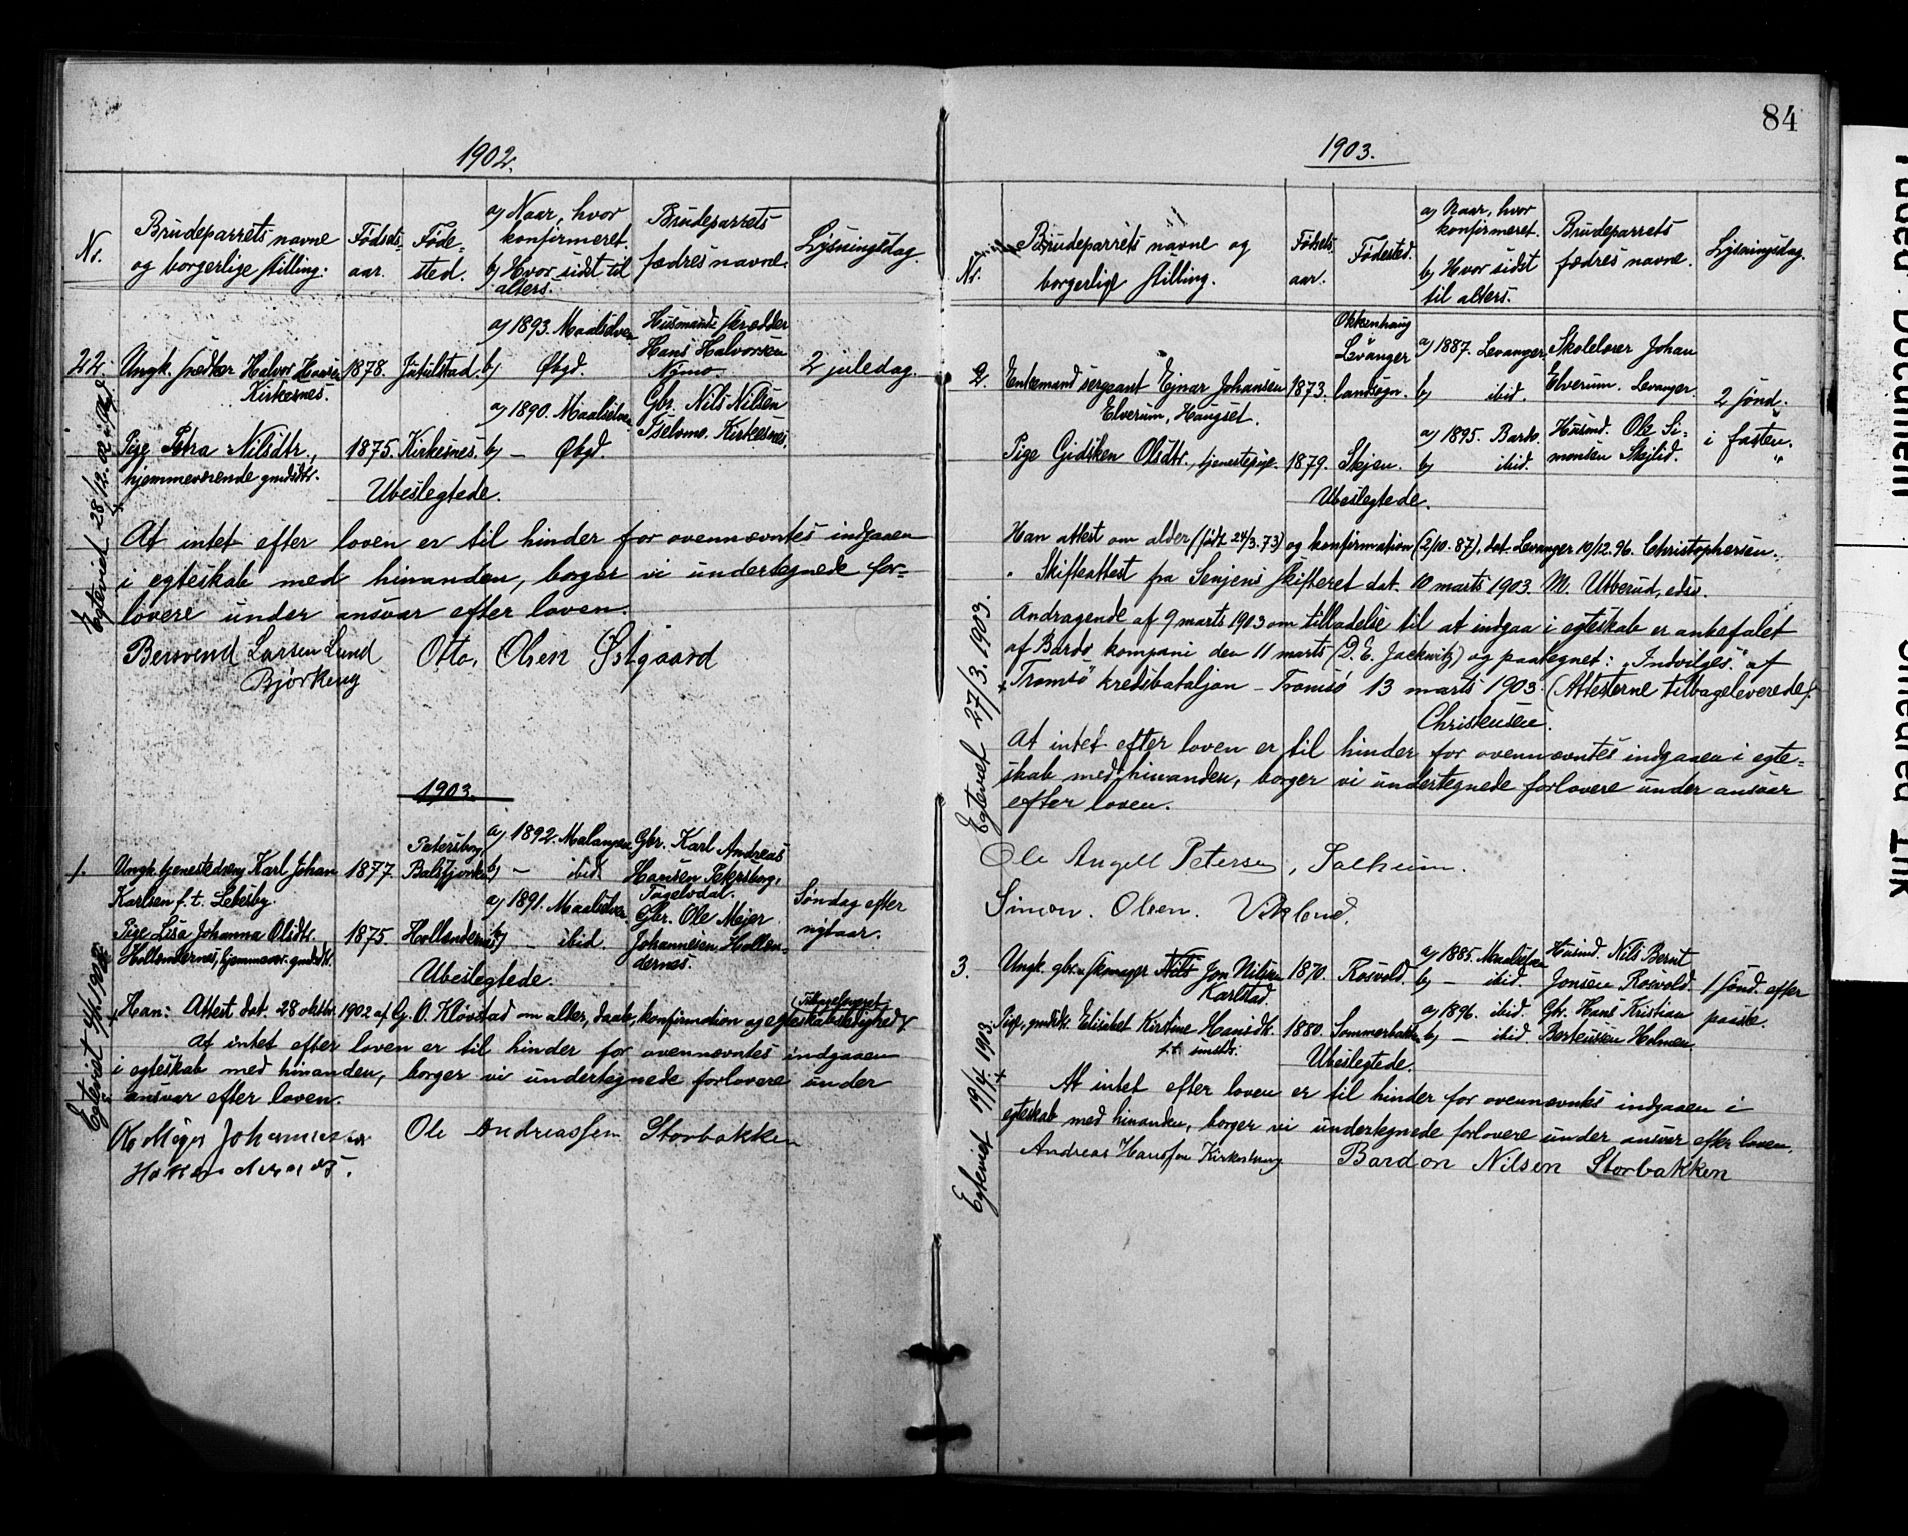 84
1902.
Nr.
Brudeparrets navne
og borgerlige stilling:
Fødsels-
aar.
Føde-
sted.
a) Naar, hvor
konfirmeret.
b) Hvor sidst til
alters.
Brudeparrets
fædres navne.
Lysningsdag.
22.
Ungk. Halvor Hansen
Kirkesnes.
1878.
a) 1893. Maalselven
b) Øbgd.
Husmand skrædder
Hans Halvorsen
Nymo.
2 juledag.
Pige Petra Nilsdtr.,
hjemmeværende gmdsdtr.
1875.
Kirkesnes.
a) 1890. Maalselven
b) — Øbgd.
Gbr. Nils Nilsen
Kirkesnes.
Ubeslegtede.
Egteviet 28/12. 02
At intet efter loven er til hinder for ovennævntes indgaaen
i egteskab med hinanden, borger vi undertegnede for-
lovere under ansvar efter loven.
Larsen Lund
Bjørkeng
Otto, Olsen Østgaard
1903.
1.
Ungk. tjenestedreng Karl Johan
Karlsen f. t.
1877.
Petersborg,
a) 1892. Malangen
b) — ibid.
Gbr. Karl Andreas
Hansen Petersborg,
Tagelvdal.
Søndag efter
nytaar.
Pige Lisa Johanna Olsdtr.
Hollendernes, hjemmevær. gmdsdtr.
1875.
Hollendernes
a) 1891. Maalselven
b) — ibid.
Gbr. Ole Mejer
Johannesen Hollen-
dernes.
Ubeslegtede.
Egteviet
Han: Attest dat. 28 oktbr. 1902 af G. O. Kløvstad om alder, daab, konfirmation og egteskabsledighed
At intet efter loven er til hinder for ovennævntes indgaaen
i egteskab med hinanden, borger vi undertegnede forlovere under
ansvar efter loven.
Ole Andreassen Storbakken
1903.
Nr.
Brudeparrets navne og
borgerlige stilling.
Fødsels-
aar.
Fødested.
a) Naar, hvor
konfirmeret.
b) Hvor sidst
til alters.
Brudeparrets
fædres navne.
Lysningsdag.
2.
Enkemand sergeant Ejnar Johansen
Elverum,
1873.
Okkenhaug
Levanger
landsogn.
a) 1887. Levanger
b) ibid.
Skolelærer Johan
Elverum. Levanger.
2 sønd.
i fasten.
Pige Gidsken Olsdtr., tjenestepige.
1879.
Skjen.
a) 1895. Bardo.
b) ibid.
Husmd. Ole Si-
monsen Skjlid.
Ubeslegtede.
Egteviet 27/3. 1903.
Han attest om alder (født 24/3. 73) og konfirmation (2/10. 87), dat. Levanger 10/12. 96. Christophersen.
" Skifteattest fra Senjens skifteret dat. 10 marts 1903. M. Utverud, edsv.
Andragende af 9 marts 1903 om tilladelse til at indgaa i egteskab er anbefalet
af Bardo kompani den 11 marts (D. E. Jackwitz) og paategnet: "Indvilges." af
Tromsö kredsbataljon — Tromsö 13 marts 1903. (Attesterne tilbageleverede).
Christensen.
At intet efter loven er til hinder for ovennævntes indgaaen i egte-
skab med hinanden, borger vi undertegnede forlovere under ansvar
efter loven.
Ole Angell Petersen, Solheim.
Simon. Olsen. Viklund.
3.
Ungk. gbr. skomager Nils Jon Nilsen
Karlstad.
1870.
Rosvold.
a) 1885. Maalselven
b) — ibid.
Husmd. Nils Bernt
Jonsen Rosvold.
1 sønd. efter
paaske.
Pige, gmdsdtr. Elisabet Kirstine Hansdtr.
1880.
Sommerbakken
a) 1896. ibid.
b) — ibid.
Gbr. Hans Kristian
Holmen
Ubeslegtede.
Egteviet 19/4. 1903.
At intet efter loven er til hinder for ovennævntes indgaaen i
egteskab med hinanden, borger vi undertegnede forlovere under ansvar efter loven.
Andreas Hansen
Bardon Nilsen Storbakken